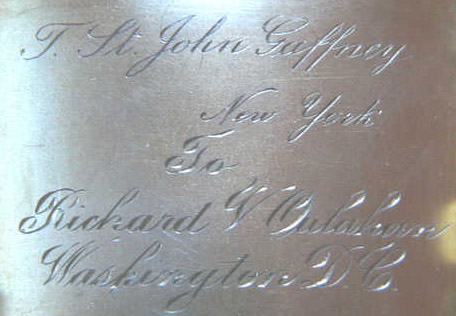 T. St. John Gaffney
New York
To
Rickard V Oulahan
Washington D.C.